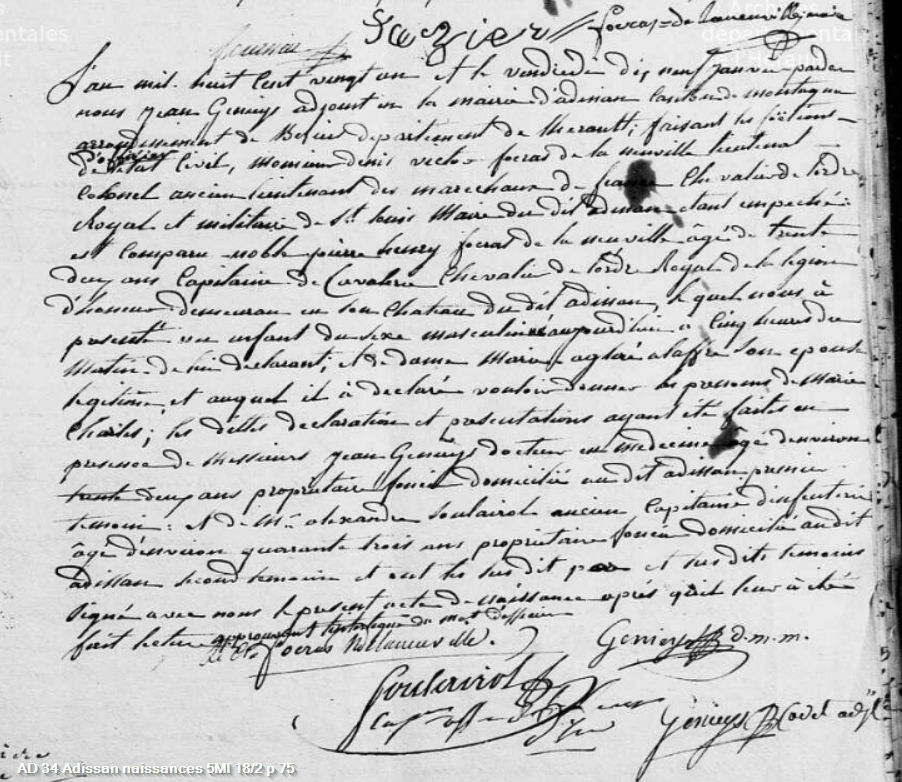 focras de Laneuville
L'an mil huit cent vingt un et le vendredi dix neuf janvier par devant
nous jean Genieys adjoint en la mairie d'adissan Canton de montagnac
arrondissement de Beziers departement de l'herault; faisant les fonctions
d'officier
de l'état Civil, monsieur denis victor focras de la neuville lieutenant
Colonel ancien lieutenant des marechaux de france Chevalier de l'ordre
Royal et militaire de St. louis Maire du dit adissan étant empeché:
est Comparu noble pierre henry focras de la neuville âgé de trente
deux ans Capitaine de Cavalerie Chevalier de l'ordre Royal de la legion
d'honneur demeurant en son Chateau du dit adissan, lequel nous à
presenté un enfant du sexe masculin né aujourd'hui a Cinq heures du
Matin de lui declarant, et de dame Marie aglaé alaffre son epouse
legitime, et auquel il à declaré vouloir donner les prenoms de Marie
Charles; les dittes declaration et presentations ayant été faites en
presence de Messieurs jean Genieys docteur en medecine âgé d'environ
trente deux ans propriétaire foncier domicilié au dit adissan premier
temoin: et de Mr. alexandre Soulairol ancien Capitaine d'infenterie
âgé d'environ quarante trois ans propriétaire foncier domicilié au dit
adissan second temoin et ont les susdit père et susdits temoins
Signé avec nous le present acte de naissance après qu'il leur à été
fait lecture approuvant l'interligne du mot d'officier
focras Dellaneuville.
Genieys d. m. m.
Soulairol
Genieys adjt
AD 34 Adissan naissances 5MI 18/2 p 75